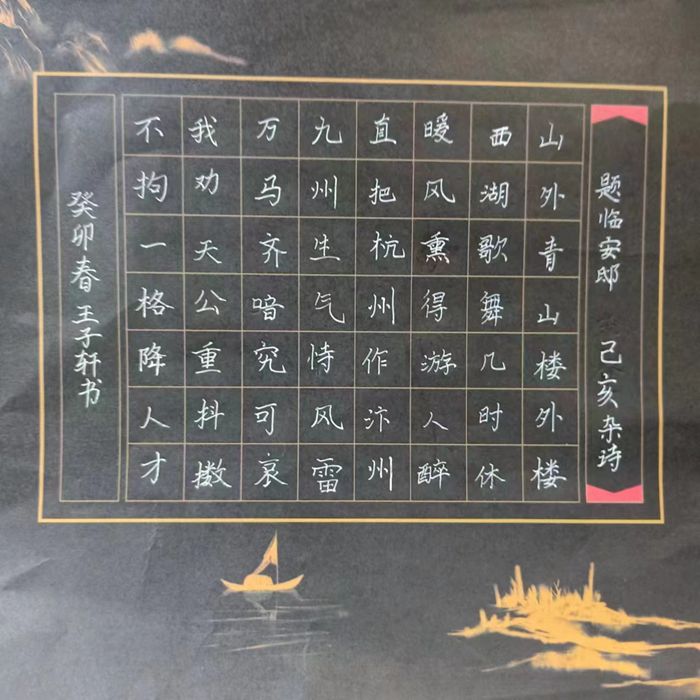 题临安邸 己亥杂诗
山外青山楼外楼
西湖歌舞几时休
暖风熏得游人醉
直把杭州作汴州
九州生气恃风雷
万马齐喑究可哀
我劝天公重抖擞
不拘一格降人才
癸卯春 王子轩书